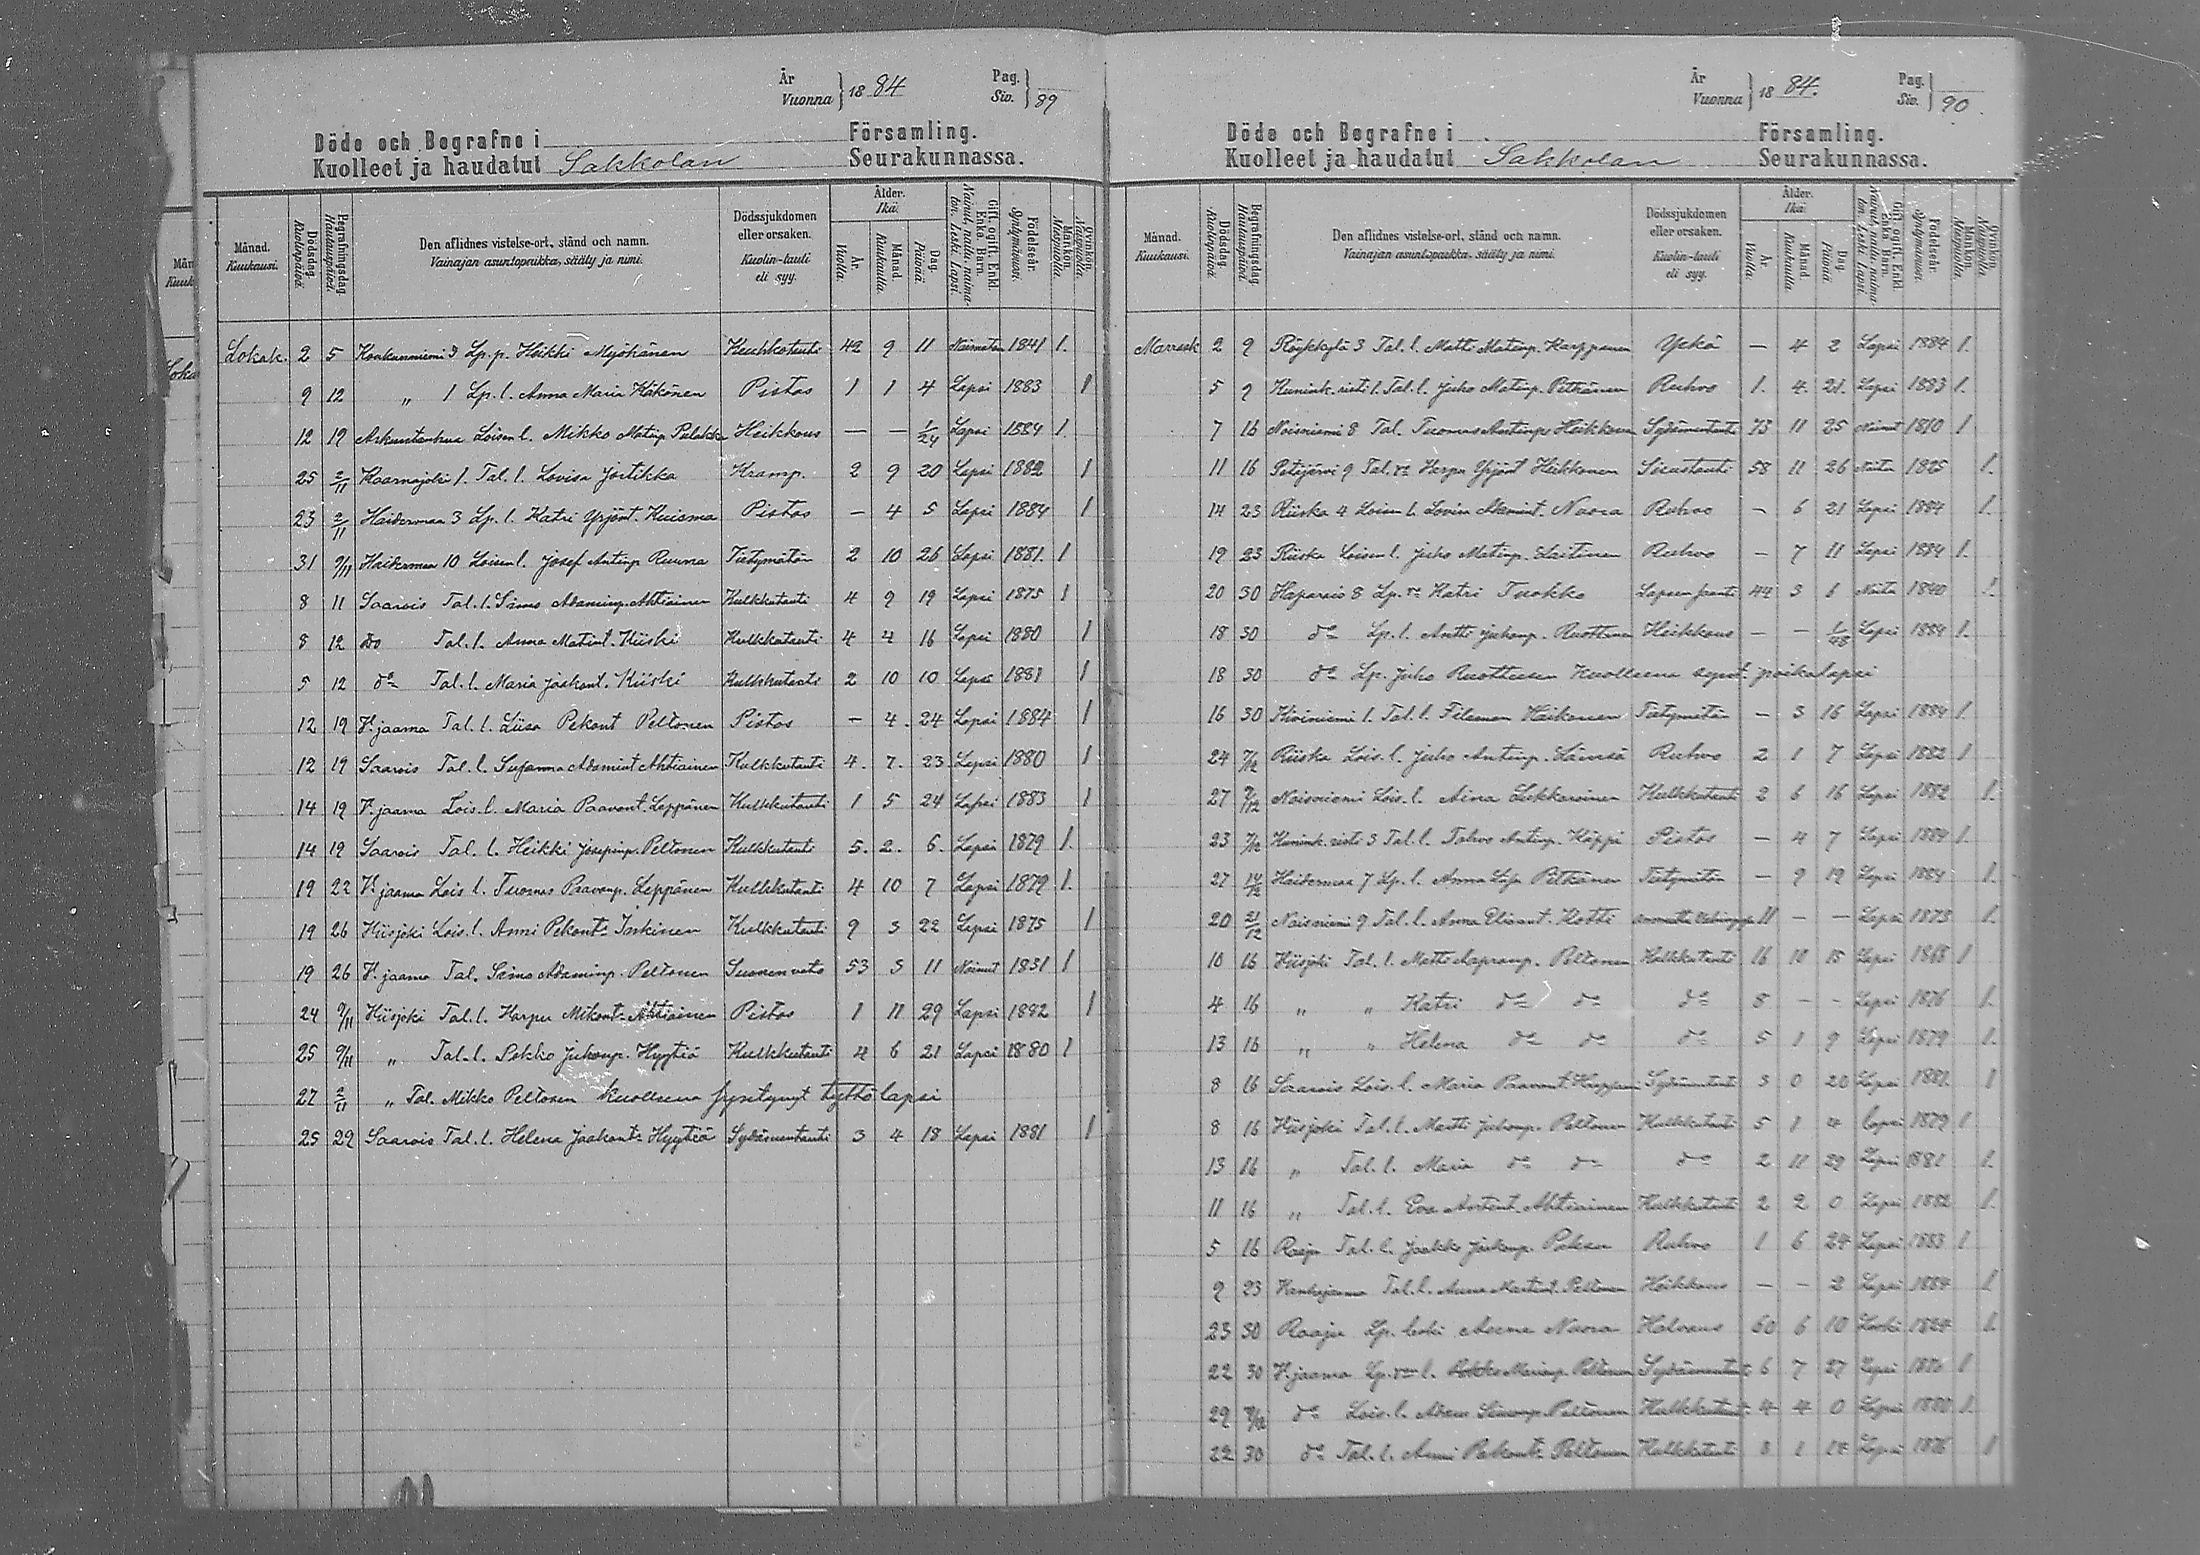 År Vuonna } 18 84 Pag. Siv. } 89
Döde och Begrafne i Församling.
Kuolleet ja haudatut Sakkolan Seurakunnassa.
Månad. Kuukausi. Dödsdag. Kuolinpäivä. Begrafningsdag. Hautauspäivä. Den aflidnes vistelse-ort, stånd och namn. Vainajan asuntopaikka, sääty ja nimi. Dödssjukdomen eller orsaken. Kuolin-tauti eli syy. Ålder. Ikä. År. Vuotta. Månad. Kuukautta. Dag. Päivää. Gift, ogift, Enkl. Enka, Barn. Nainut, naitu, naimaton, Leski, Lapsi. Födelseår. Syntymävuosi. Mankön. Miespuolia. Qvinkön. Naispuolia.
Lokak. 2 5 3 Lp. p. Heikki Myöhänen Keuhkotauti 42 9 11 Naimaton 1841 1.
9 12 „ 1 Lp. l. Anna Maria Käkönen Pistos 1 1 4 Lapsi 1883 1
12 19 Loisen l. Mikko Matinp. Pulakka Heikkous — — 1/24 Lapsi 1884 1.
25 2/11 Kaarnajoki 1. Tal. l. Lovisa Kramp. 2 9 20 Lapsi 1882 1
23 2/11 Haitermaa 3 Lp. l. Katri Yrjönt. Kuisma Pistos — 4 5 Lapsi 1884 1
31 9/11 Haitermaa 10 Loisen l. Josef Antinp. Ruuna Tietymätön 2 10 26 Lapsi 1881. 1
8 11 Saarois Tal. l. Simo Adaminp. Ahtiainen Kulkkutauti 4 9 19 Lapsi 1875 1
8 12 do Tal. l. Anna Matint. Kiiski Kulkkutauti 4 4 16 Lapsi 1880 1
5 12 do Tal. l. Maria Jaakont. Kiiski Kulkkutauti 2 10 10 Lapsi 1881 1
12 19 V:jaama Tal. l. Liisa Pekont Peltonen Pistos — 4. 24 Lapsi 1884 1
12 19 Saarois Tal. l. Susanna Adamint Ahtiainen Kulkkutauti 4. 7. 23 Lapsi 1880 1
14 19 V:jaama Lois. l. Maria Paavont. Leppänen Kulkkutauti 1 5 24 Lapsi 1883 1
14 19 Saarois Tal. l. Heikki Josepinp. Peltonen Kulkkutauti 5. 2. 6. Lapsi 1879 1.
19 22 V:jaama Lois l. Tuomas Paavonp. Leppänen Kulkkutauti 4 10 7 Lapsi 1879 1.
19 26 Hiisjoki Lois. l. Anni Pekont. Inkinen Kulkkutauti 9 3 22 Lapsi 1875 1
19 26 V:jaama Tal. Simo Adaminp. Peltonen Suonen veto 53 3 11 Nainut 1831 1
24 9/11 Hiisjoki Tal. l. Harpu Mikont. Ahtiainen Pistos 1 11 29 Lapsi 1882 1
25 9/11 „ Tal. l. Pekko Juhonp. Hyytiä Kulkkutauti 4 6 21 Lapsi 1880 1
27 2/11 „ Tal. Mikko Peltonen kuolleena syntynyt tyttölapsi
25 29 Saarois Tal. l. Helena Jaakont. Hyytiä Sydämentauti 3 4 18 Lapsi 1881 1
År Vuonna } 18 84. Pag. Siv. } 90
Döde och Begrafne i Församling.
Kuolleet ja haudatut Sakkolan Seurakunnassa.
Månad. Kuukausi. Dödsdag. Kuolinpäivä. Begrafningsdag. Hautauspäivä. Den aflidnes vistelse-ort, stånd och namn. Vainajan asuntopaikka, sääty ja nimi. Dödssjukdomen eller orsaken. Kuolin-tauti eli syy. Ålder. Ikä. År. Vuotta. Månad. Kuukautta. Dag. Päivää. Gift, ogift, Enkl. Enka, Barn. Nainut, naitu, naimaton, Leski, Lapsi. Födelseår. Syntymävuosi. Mankön. Miespuolia. Qvinkön. Naispuolia.
Marrask 2 9 Röykkylä 3 Tal. l. Matti Matinp. Karppanen Yskä — 4 2 Lapsi 1884 1.
5 9 Kunink. risti 1. Tal. l. Juho Matinp. Pitkänen Ruhvo 1. 4. 21. Lapsi 1883 1.
7 16 Noisniemi 8 Tal. Tuomas Antinp. Heikkonen Sydämentauti 73 11 25 Nainut 1810 1
11 16 Petäjärvi 9 Tal. vo Harpu Yrjönt Heikkonen 58 11 26 Naitu 1825 1.
14 23 Riiska 4 Loisen l. Lovisa Nuora Ruhvo — 6 21 Lapsi 1884 1.
19 23 Riiska Loisen l. Juho Matinp. Laitinen Ruhvo — 7 11 Lapsi 1884 1.
20 30 Haparais 8 Lp. vo Katri Tuokko 44 3 6 Naitu 1840 1.
18 30 do Lp. l. Antti Juhonp. Ruottinen Heikkous — — 1/48 Lapsi 1884 1.
18 30 do Lp. Juho Ruottisen kuolleena synt. poikalapsi
16 30 Kiviniemi 1. Tal. l. Filemon Haikonen Tietymätön — 3 16 Lapsi 1884 1.
24 7/12 Riiska Lois. l. Juho Antinp. Lämsä Ruhvo 2 1 7 Lapsi 1882 1
27 7/12 Noisniemi Lois. l. Aina Kulkkutauti 2 6 16 Lapsi 1882 1.
23 7/12 Kunink. risti 3 Tal. l. Tahvo Antinp. Käppi Pistos — 4 7 Lapsi 1884 1.
27 14/12 Haitermaa 7 Lp. l. Anna Pitkänen Tietymätön — 9 19 Lapsi 1884 1.
20 21/12 Noisniemi 9 Tal. l. Anna Kotti 11 — — Lapsi 1873 1.
10 16 Hiisjoki Tal. l. Matti Peltonen Kulkkutauti 16 10 15 Lapsi 1868 1
4 16 „ „ Katri do do do 8 — — Lapsi 1876 1.
13 16 „ „ Helena do do do 5 1 9 Lapsi 1879 1.
8 16 Saarois Lois. l. Maria Paavont. Sydämentauti 3 0 20 Lapsi 1881. 1
8 16 Hiisjoki Tal. l. Martti Juhonp. Peltonen Kulkkutauti 5 1 4 Lapsi 1879 1
13 16 „ Tal. l. Maria do do do 2 11 29 Lapsi 1881 1.
11 16 „ Tal. l. Eva Ahtiainen Kulkkutauti 2 2 0 Lapsi 1882 1.
5 16 Raaju Tal. l. Jaakko Juhonp. Ruhvo 1 6 24 Lapsi 1883 1
9 23 Tal. l. Anna Martint. Peltonen Heikkous — — 2 Lapsi 1884 1.
23 30 Raaju Lp. leski Nuora Halvaus 60 6 10 Leski 1824 1.
22 30 V:jaama Lp. l. Peltonen Sydämentauti 6 7 27 Lapsi 1876 1
29 7/12 do Lois. l. Simonp. Peltonen Kulkkutauti 4 4 0 Lapsi 1880 1.
22 30 do Tal. l. Anni Pekont. Peltonen Kulkkutauti 8 1 14 Lapsi 1876 1